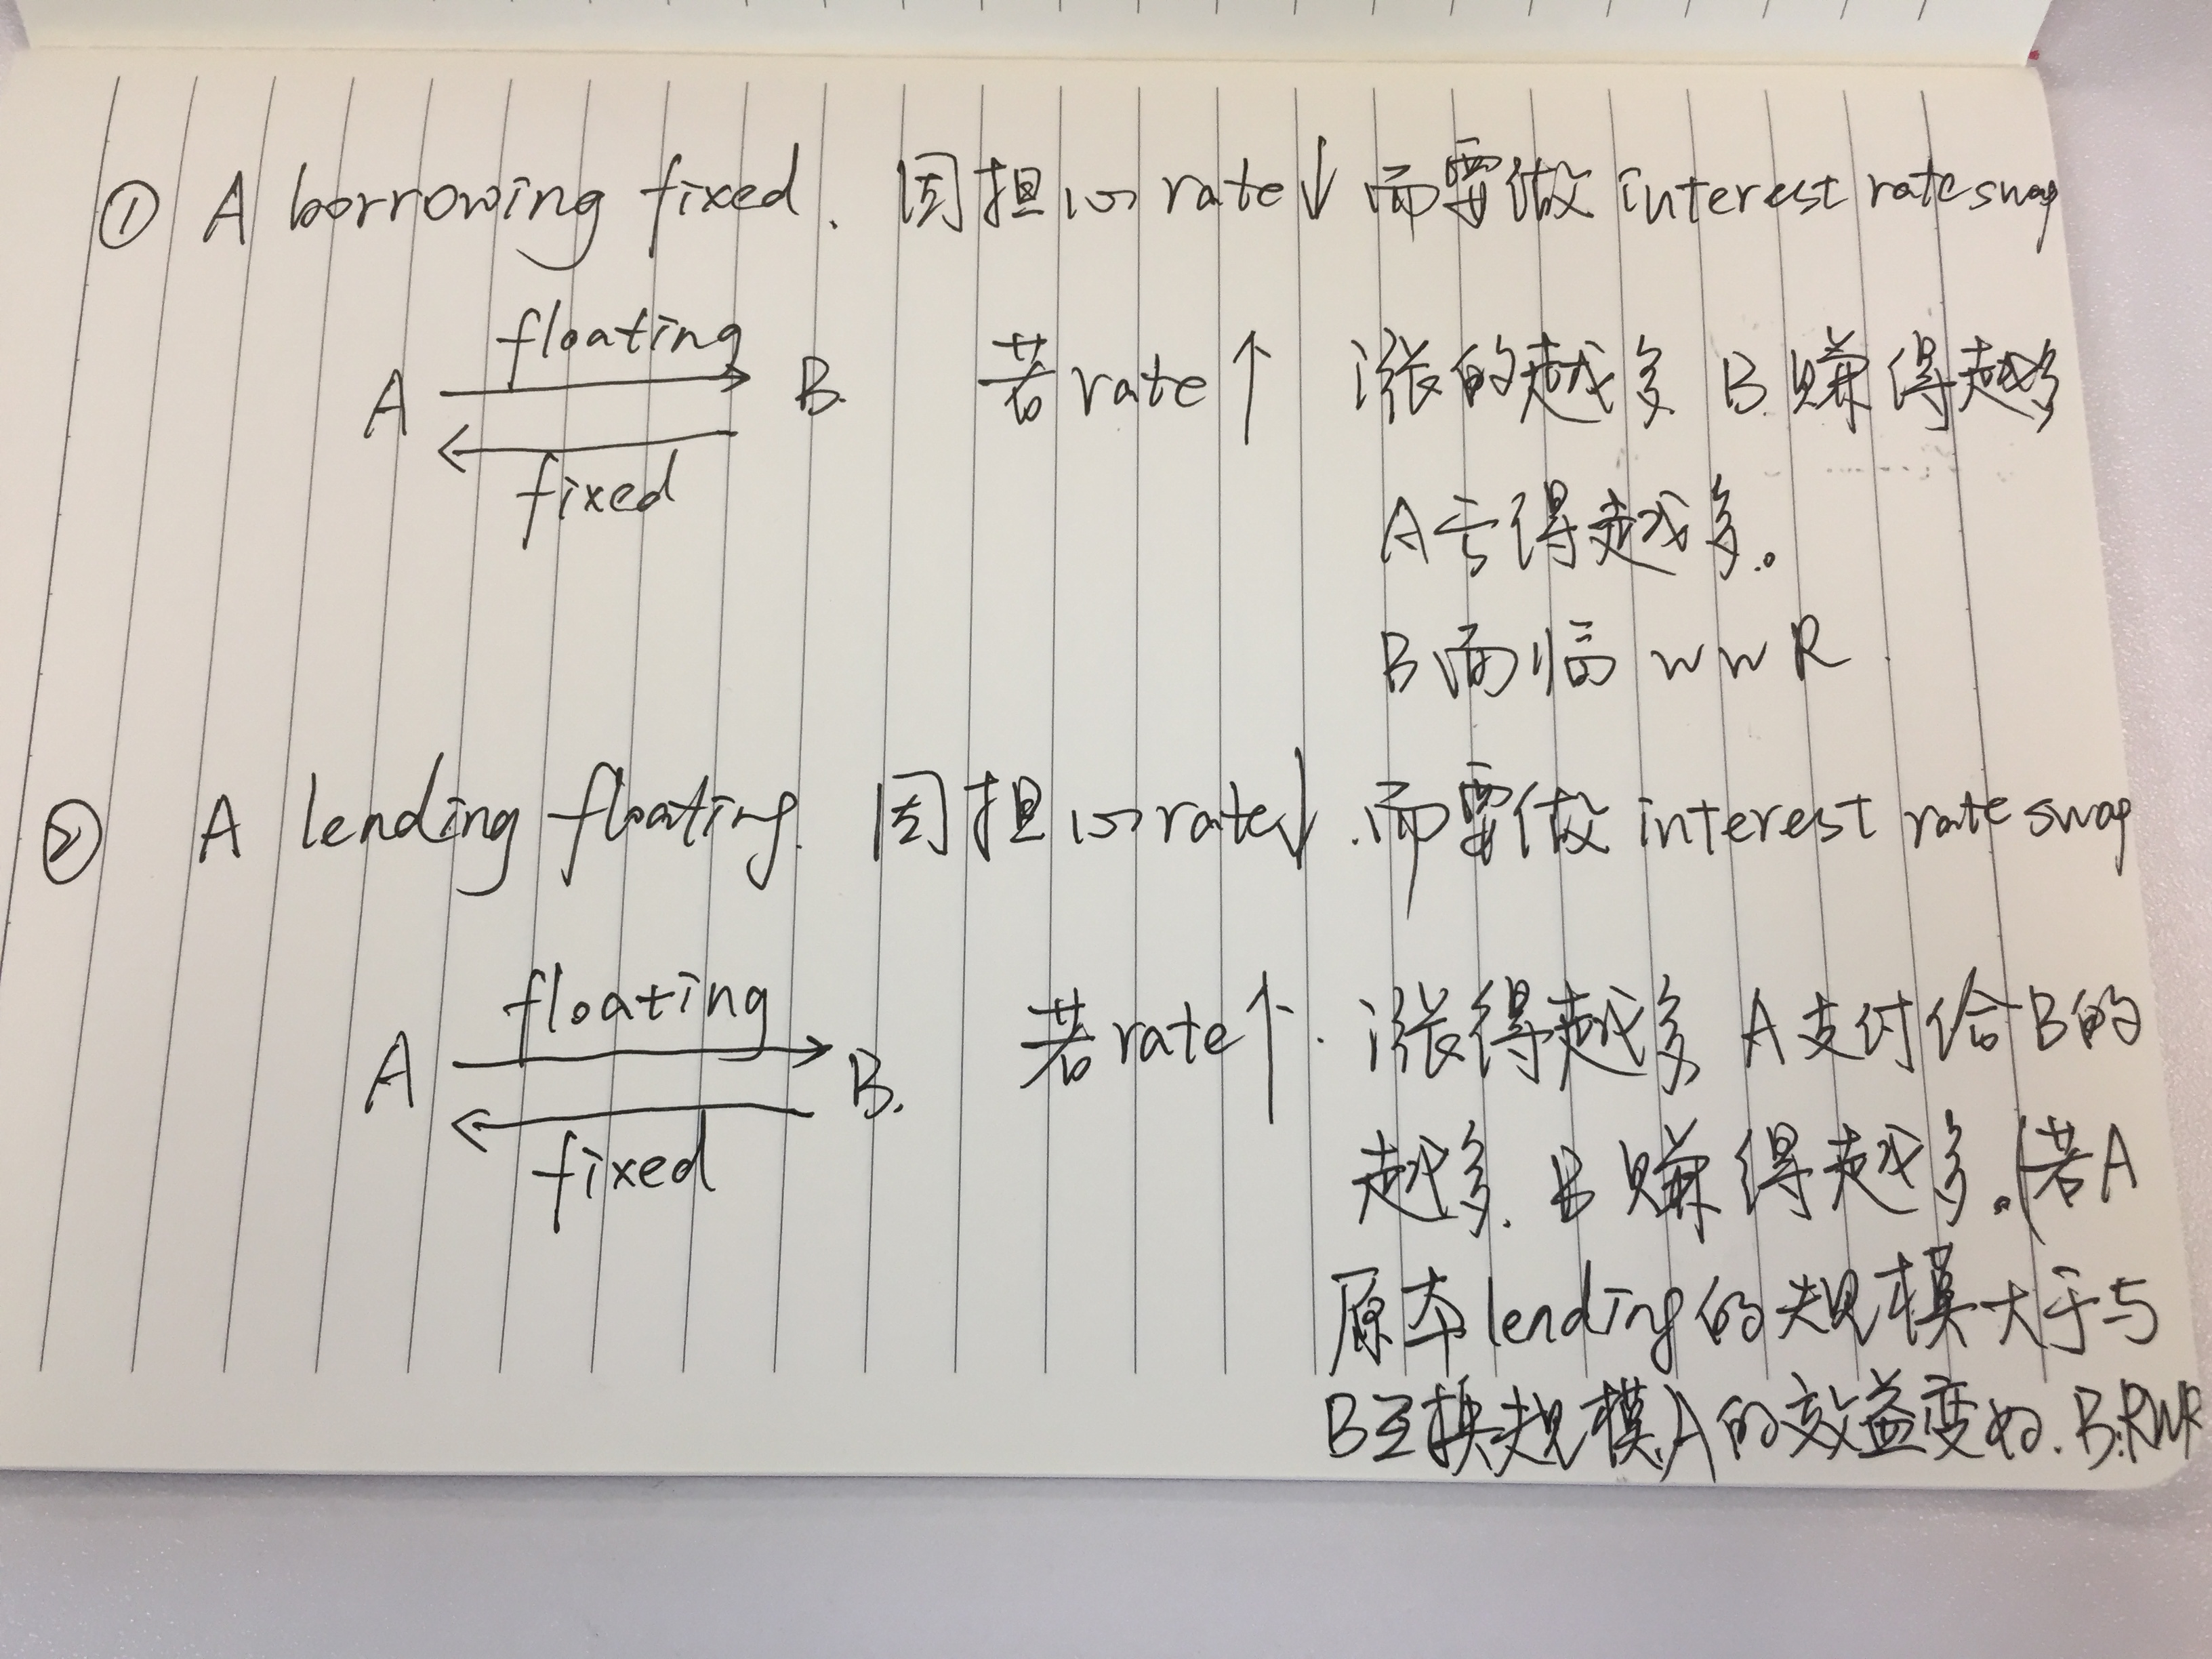 ① A borrowing fixed. 因担心rate↓而要做interest rate swap
floating
A B. 若rate↑ 涨的越多 B赚得越多
fixed
A亏得越多。
B面临 WWR.
② A lending floating. 因担心rate↓.而要做interest rate swap
floating
A B. 若rate↑. 涨得越多 A支付给B的
fixed
越多. B赚得越多.(若A
原本lending的规模大于与
B互换规模A的效益变好. B:RWR